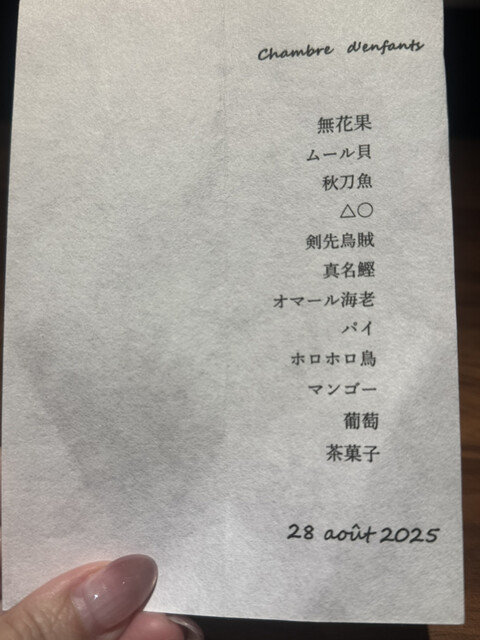 Chambre d'enfants
無花果
ムール貝
秋刀魚
△〇
剣先烏賊
真名鰹
オマール海老
パイ
ホロホロ鳥
マンゴー
葡萄
茶菓子
28 août 2025